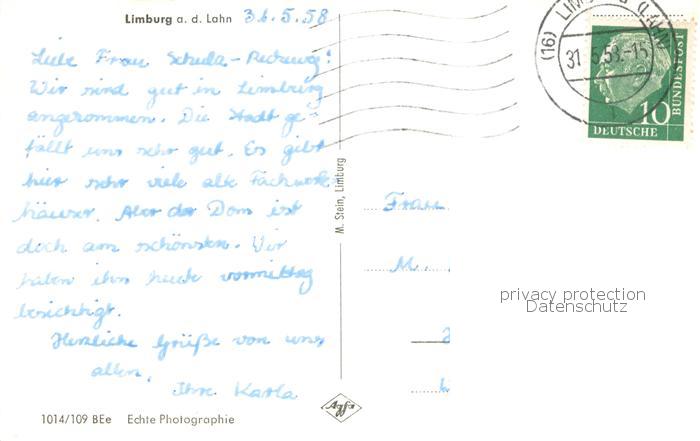 Limburg a. d. Lahn 31.5.58
Liebe Frau Schula-
Wir sind gut in Limburg
angekommen. Die Stadt ge-
fällt uns sehr gut. Es gibt
hier sehr viele alte Fachwerk-
häuser. Aber der Dom ist
doch am schönsten. Wir
haben ihn heute vormittag
besichtigt.
Herzliche Grüße von uns
allen,
Ihre Karla
1014/109 BEe Echte Photographie
M. Stein, Limburg
Agfa
(16) LIMBURG (LAHN
31.5.58.-15
10
DEUTSCHE
BUNDESPOST
Frau
M.
privacy protection
Datenschutz